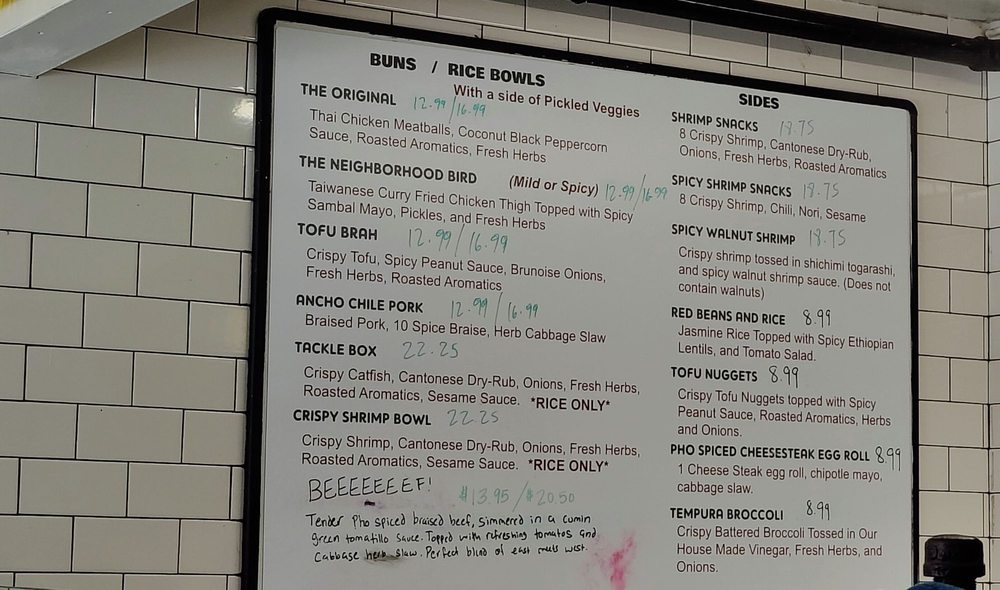 BUNS / RICE BOWLS
With a side of Pickled Veggies
THE ORIGINAL 12.99/16.99
Thai Chicken Meatballs, Coconut Black Peppercorn
Sauce, Roasted Aromatics, Fresh Herbs
THE NEIGHBORHOOD BIRD (Mild or Spicy) 12.99/16.99
Taiwanese Curry Fried Chicken Thigh Topped with Spicy
Sambal Mayo, Pickles, and Fresh Herbs
TOFU BRAH 12.99/16.99
Crispy Tofu, Spicy Peanut Sauce, Brunoise Onions,
Fresh Herbs, Roasted Aromatics
ANCHO CHILE PORK 12.99/16.99
Braised Pork, 10 Spice Braise, Herb Cabbage Slaw
TACKLE BOX 22.25
Crispy Catfish, Cantonese Dry-Rub, Onions, Fresh Herbs,
Roasted Aromatics, Sesame Sauce. *RICE ONLY*
CRISPY SHRIMP BOWL 22.25
Crispy Shrimp, Cantonese Dry-Rub, Onions, Fresh Herbs,
Roasted Aromatics, Sesame Sauce. *RICE ONLY*
BEEEEEEEF! $13.95/$20.50
Tender Pho spiced braised beef, simmered in a cumin
green tomatillo sauce. Topped with refreshing tomatos and
Cabbage herb slaw. Perfect blend of east meets west.
SIDES
SHRIMP SNACKS 18.75
8 Crispy Shrimp, Cantonese Dry-Rub,
Onions, Fresh Herbs, Roasted Aromatics
SPICY SHRIMP SNACKS 18.75
8 Crispy Shrimp, Chili, Nori, Sesame
SPICY WALNUT SHRIMP 18.75
Crispy shrimp tossed in shichimi togarashi,
and spicy walnut shrimp sauce. (Does not
contain walnuts)
RED BEANS AND RICE 8.99
Jasmine Rice Topped with Spicy Ethiopian
Lentils, and Tomato Salad.
TOFU NUGGETS 8.99
Crispy Tofu Nuggets topped with Spicy
Peanut Sauce, Roasted Aromatics, Herbs
and Onions.
PHO SPICED CHEESESTEAK EGG ROLL 8.99
1 Cheese Steak egg roll, chipotle mayo,
cabbage slaw.
TEMPURA BROCCOLI 8.99
Crispy Battered Broccoli Tossed in Our
House Made Vinegar, Fresh Herbs, and
Onions.